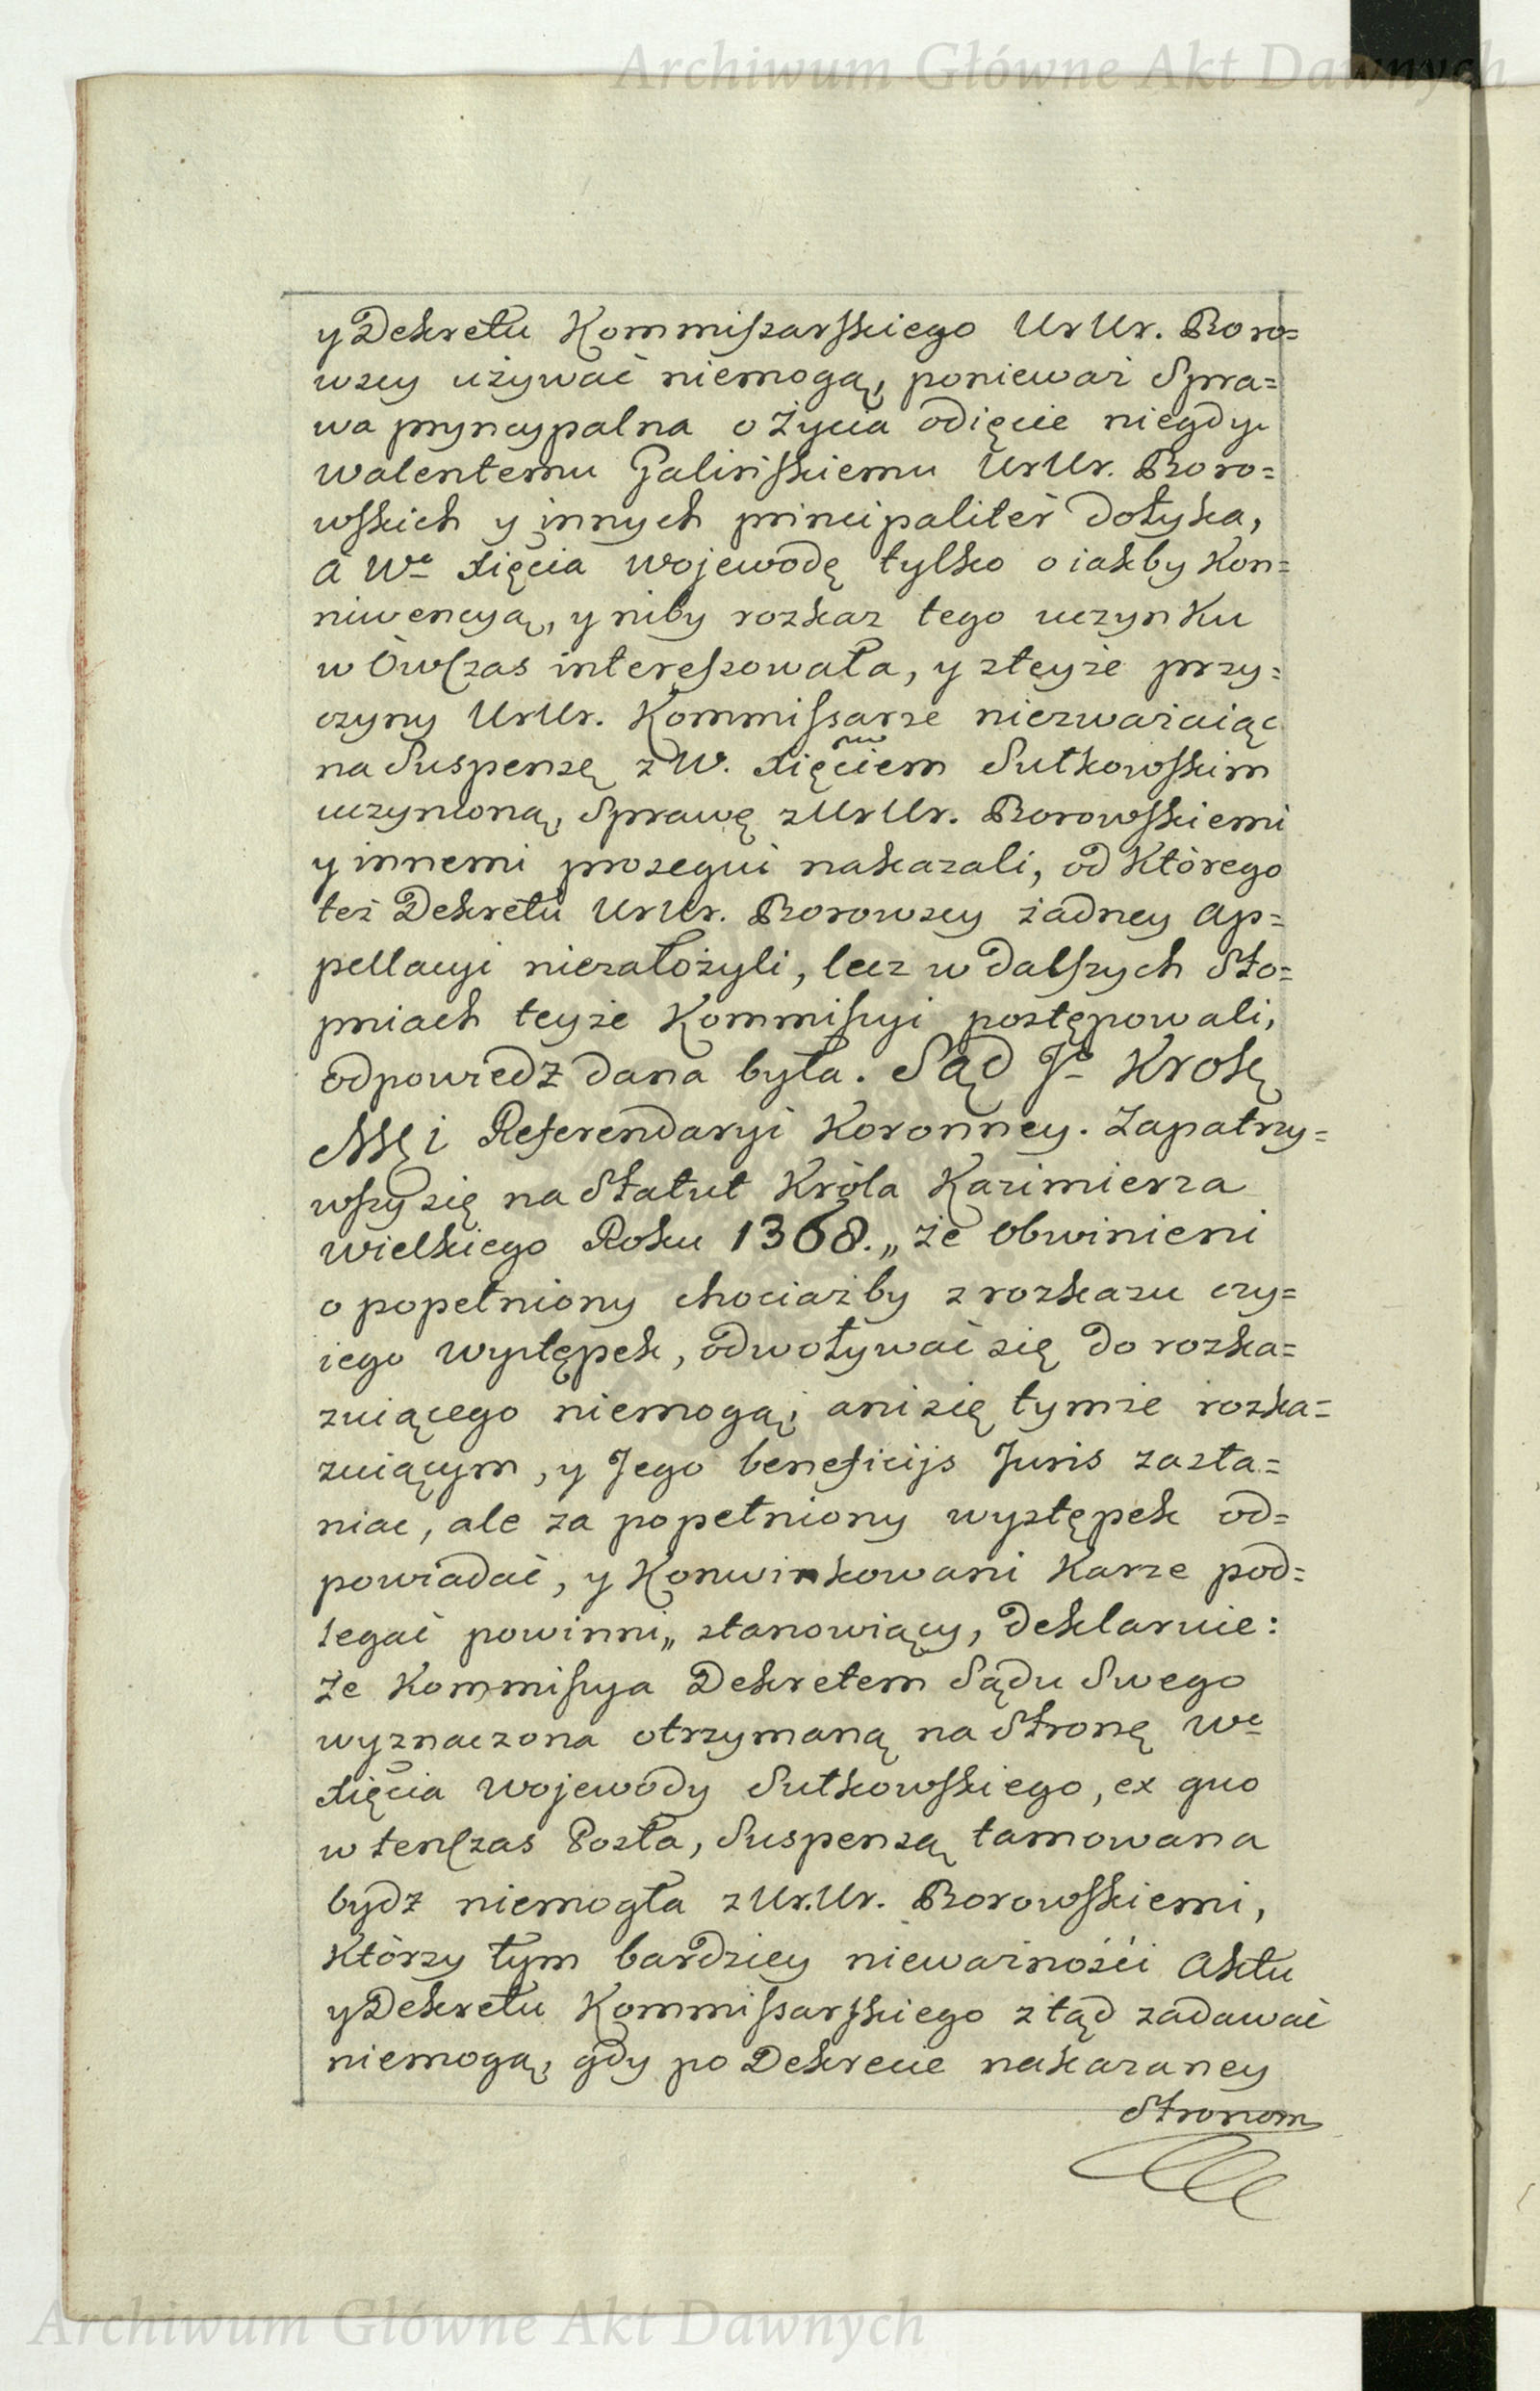 Archiwum Główne Akt Dawnych
y Dekretu Kommiszarskiego UrUr. Boro=
wscy używać niemogą, ponieważ Spra=
wa pryncypalna o Życia odięcie niegdy
Walentemu Galińskiemu UrUr. Boro=
wskich y innych principaliter dotyka,
a We Xięcia Wojewodę tylko o iakby Kon=
niwencyą, y niby rozkaz tego uczynku
w Ówczas intereszowała, y zteyże przy=
czyny UrUr. Kommissarze niezważaiąc
na Suspensę z W. Xięciem Sułkowskim
uczynioną, Sprawę z UrUr. Borowskiemi
y innemi prosequi nakazali, od Którego
też Dekretu UrUr. Borowscy żadney Ap=
pellacyi niezałożyli, lecz w dalszych Sto=
pniach teyże Kommissyi postępowali,
odpowiedz dana była. Sąd Jo Krolę
Mśći Referendaryi Koronney. Zapatry=
wszy się na Statut Króla Kazimierza
Wielkiego Roku 1368. „ że Obwinieni
o popełniony chociażby z rozkazu czy=
iego występek, odwoływać się do rozka=
zuiącego niemogą, ani się tymże rozka=
zuiącym, y Jego beneficijs Juris zasła=
niac, ale za popełniony występek od=
powiadać, y Konwinkowani Karze pod=
legać powinni „ stanowiący, deklaruie:
Ze Kommissya Dekretem Sądu Swego
wyznaczona otrzymaną na Stronę We
Xięcia Wojewody Sułkowskiego, ex quo
w tenczas Posła, Suspensą tamowana
bydz niemogła z Ur.Ur. Borowskiemi,
Którzy tym bardziey nieważnośći Aktu
y Dekretu Kommissarskiego ztąd zadawać
niemogą, gdy po Dekrecie nakazaney
Stronom
Archiwum Główne Akt Dawnych